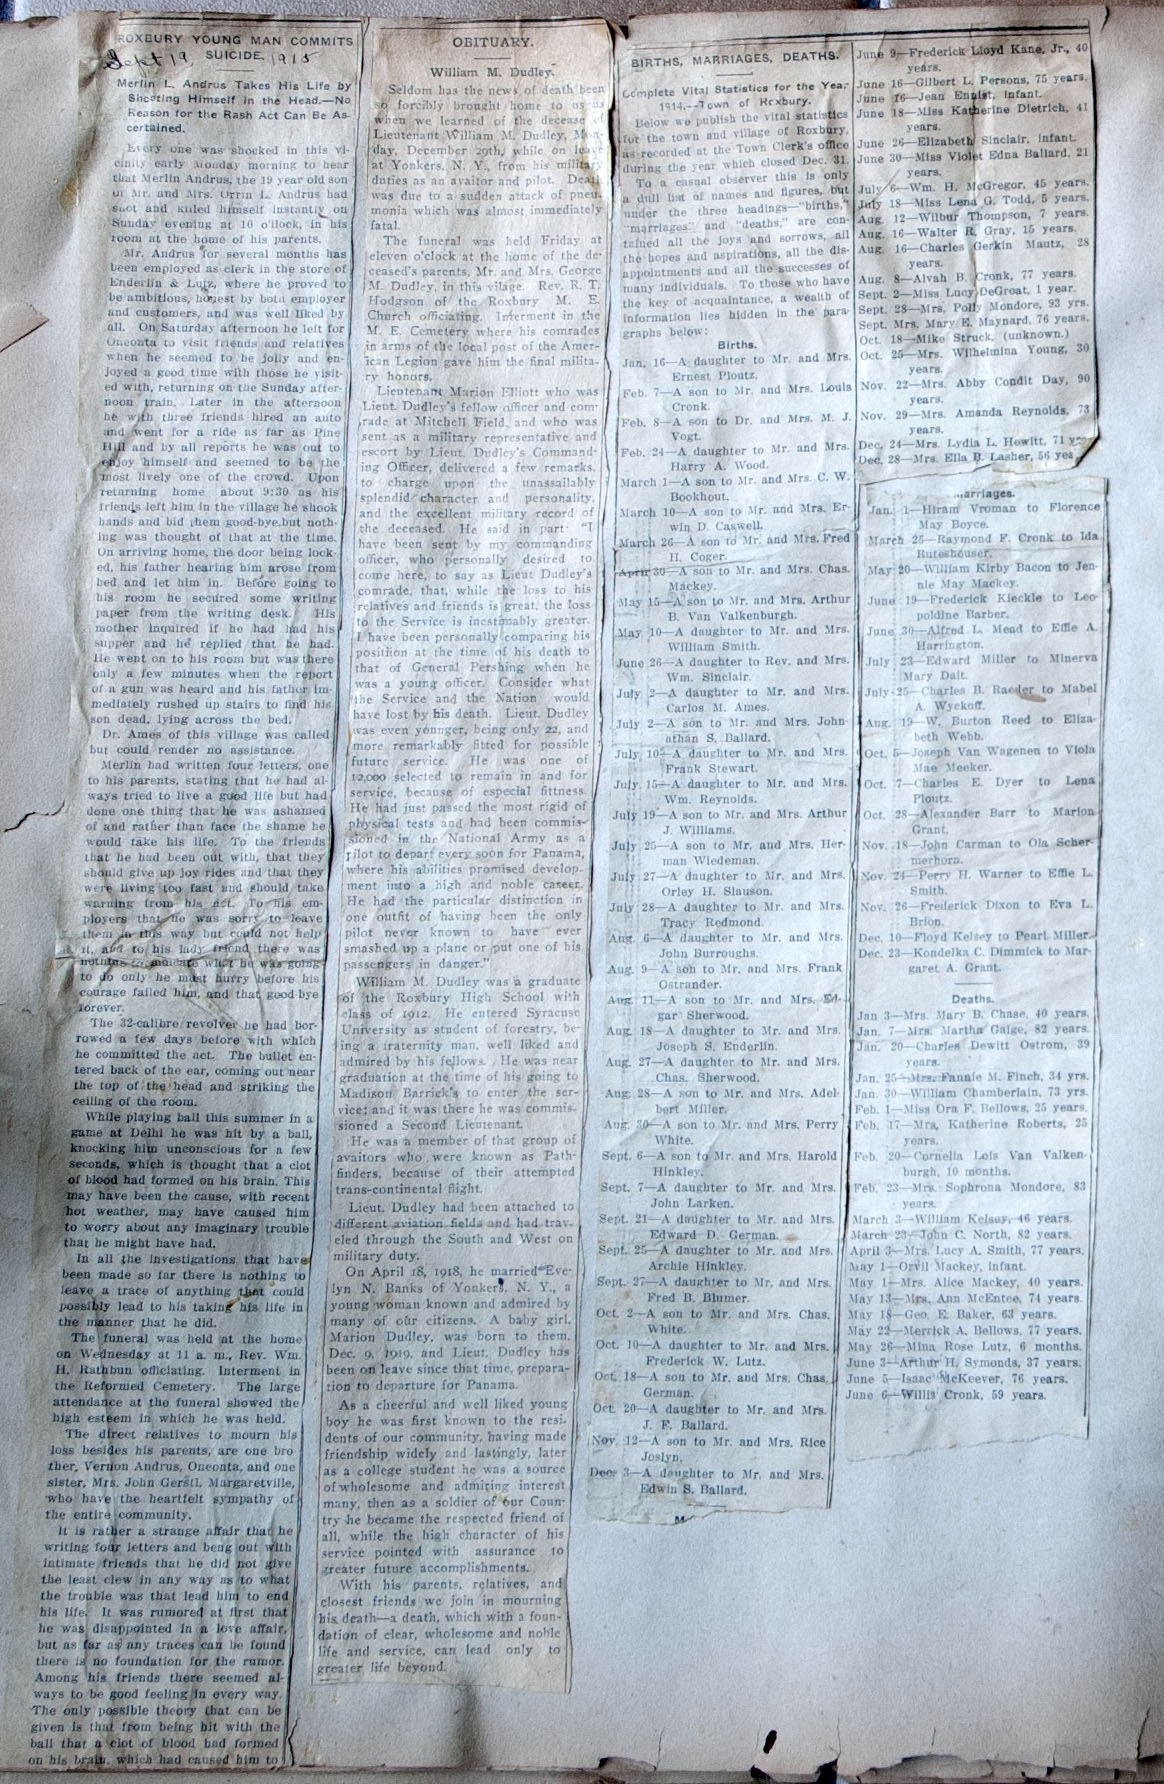 ROXBURY YOUNG MAN COMMITS
SUICIDE.
Sept 19 1915
Merlin L. Andrus Takes His Life by
Shooting Himself in the Head.—No
Reason for the Rash Act Can Be As-
certained.
Every one was shocked in this vi-
cinity early Monday morning to hear
that Merlin Andrus, the 19 year old son
of Mr. and Mrs. Orrin L. Andrus had
shot and killed himself instantly on
Sunday evening at 10 o'lock, in his
room at the home of his parents.
Mr. Andrus for several months has
been employed as clerk in the store of
Enderlin & Lutz, where he proved to
be ambitious, honest by both employer
and customers, and was well liked by
all. On Saturday afternoon he left for
Oneonta to visit friends and relatives
when he seemed to be jolly and en-
joyed a good time with those he visit-
ed with, returning on the Sunday after-
noon train. Later in the afternoon
he with three friends hired an auto
and went for a ride as far as Pine
Hill and by all reports he was out to
enjoy himself and seemed to be the
most lively one of the crowd. Upon
returning home about 9:30 as his
friends left him in the village he shook
hands and bid them good-bye but noth-
ing was thought of that at the time.
On arriving home, the door being lock-
ed, his father hearing him arose from
bed and let him in. Before going to
his room he secured some writing
paper from the writing desk. His
mother inquired if he had had his
supper and he replied that he had.
He went on to his room but was there
only a few minutes when the report
of a gun was heard and his father im-
mediately rushed up stairs to find his
son dead, lying across the bed.
Dr. Ames of this village was called
but could render no assistance.
Merlin had written four letters, one
to his parents, stating that he had al-
ways tried to live a good life but had
done one thing that he was ashamed
of and rather than face the shame he
would take his life. To the friends
that he had been out with, that they
should give up joy rides and that they
were living too fast and should take
warning from his act. To his em-
ployers that he was sorry to leave
them in this way but could not help
it, and to his lady friend there was
nothing to indicate what he was going
to do only he must hurry before his
courage failed him, and that good-bye
forever.
The 32-calibre revolver he had bor-
rowed a few days before with which
he committed the act. The bullet en-
tered back of the ear, coming out near
the top of the head and striking the
ceiling of the room.
While playing ball this summer in a
game at Delhi he was hit by a ball,
knocking him unconscious for a few
seconds, which is thought that a clot
of blood had formed on his brain. This
may have been the cause, with recent
hot weather, may have caused him
to worry about any imaginary trouble
that he might have had.
In all the investigations that have
been made so far there is nothing to
leave a trace of anything that could
possibly lead to his taking his life in
the manner that he did.
The funeral was held at the home
on Wednesday at 11 a. m., Rev. Wm.
H. Rathbun officiating. Interment in
the Reformed Cemetery. The large
attendance at the funeral showed the
high esteem in which he was held.
The direct relatives to mourn his
loss besides his parents, are one bro
ther, Vernon Andrus, Oneonta, and one
sister, Mrs. John Gerstl, Margaretville,
who have the heartfelt sympathy of
the entire community.
It is rather a strange affair that he
writing four letters and beng out with
intimate friends that he did not give
the least clew in any way as to what
the trouble was that lead him to end
his life. It was rumored at first that
he was disappointed in a love affair,
but as far as any traces can be found
there is no foundation for the rumor.
Among his friends there seemed al-
ways to be good feeling in every way.
The only possible theory that can be
given is that from being hit with the
ball that a clot of blood had formed
on his brain, which had caused him to
OBITUARY.
William M. Dudley.
Seldom has the news of death been
so forcibly brought home to us as
when we learned of the decease of
Lieutenant William M. Dudley, Mon-
day, December 29th, while on leave
at Yonkers, N. Y., from his military
duties as an avaitor and pilot. Death
was due to a sudden attack of pneu-
monia which was almost immediately
fatal.
The funeral was held Friday at
eleven o'clock at the home of the de-
ceased's parents, Mr. and Mrs. George
M. Dudley, in this vilage. Rev. R. T.
Hodgson of the Roxbury M. E.
Church officiating. Interment in the
M. E. Cemetery where his comrades
in arms of the local post of the Amer-
ican Legion gave him the final milita-
ry honors.
Lieutenant Marion Elliott who was
Lieut. Dudley's fellow officer and com-
rade at Mitchell Field, and who was
sent as a military representative and
escort by Lieut. Dudley's Command-
ing Officer, delivered a few remarks,
to charge upon the unassailably
splendid character and personality,
and the excellent military record of
the deceased. He said in part: "I
have been sent by my commanding
officer, who personally desired to
come here, to say as Lieut Dudley's
comrade, that, while the loss to his
relatives and friends is great, the loss
to the Service is inestimably greater.
I have been personally comparing his
position at the time of his death to
that of General Pershing when he
was a young officer. Consider what
the Service and the Nation would
have lost by his death. Lieut. Dudley
was even younger, being only 22, and
more remarkably fitted for possible
future service. He was one of
12,000 selected to remain in and for
service, because of especial fittness.
He had just passed the most rigid of
physical tests and had been commis-
sioned in the National Army as a
pilot to depart every soon for Panama,
where his abilities promised develop-
ment into a high and noble career.
He had the particular distinction in
one outfit of having been the only
pilot never known to have ever
smashed up a plane or put one of his
passengers in danger."
William M. Dudley was a graduate
of the Roxbury High School with
class of 1912. He entered Syracuse
University as student of forestry, be-
ing a fraternity man, well liked and
admired by his fellows. He was near
graduation at the time of his going to
Madison Barrick's to enter the ser-
vice; and it was there he was commis-
sioned a Second Lieutenant.
He was a member of that group of
avaitors who were known as Path-
finders, because of their attempted
trans-continental flight.
Lieut. Dudley had been attached to
different aviation fields and had trav-
eled through the South and West on
military duty.
On April 18, 1918, he married Eve-
lyn N. Banks of Yonkers, N. Y., a
young woman known and admired by
many of our citizens. A baby girl,
Marion Dudley, was born to them,
Dec. 9, 1919, and Lieut. Dudley has
been on leave since that time, prepara-
tion to departure for Panama.
As a cheerful and well liked young
boy he was first known to the resi-
dents of our community, having made
friendship widely and lastingly, later
as a college student he was a source
of wholesome and admiring interest
many, then as a soldier of our Coun-
try he became the respected friend of
all, while the high character of his
service pointed with assurance to
greater future accomplishments.
With his parents, relatives, and
closest friends we join in mourning
his death—a death, which with a foun-
dation of clear, wholesome and noble
life and service, can lead only to
greater life beyond.
BIRTHS, MARRIAGES, DEATHS.
Complete Vital Statistics for the Year
1914.—Town of Roxbury.
Below we publish the vital statistics
for the town and village of Roxbury,
as recorded at the Town Clerk's office
during the year which closed Dec. 31.
To a casual observer this is only
a dull list of names and figures, but
under the three headings—"births,"
"marriages" and "deaths," are con-
tained all the joys and sorrows, all
the hopes and aspirations, all the dis-
appointments and all the successes of
many individuals. To those who have
the key of acquaintance, a wealth of
information lies hidden in the para-
graphs below:
Births.
Jan. 16—A daughter to Mr. and Mrs.
Ernest Ploutz.
Feb. 7—A son to Mr. and Mrs. Louis
Cronk.
Feb. 8—A son to Dr. and Mrs. M. J.
Vogt.
Feb. 24—A daughter to Mr. and Mrs.
Harry A. Wood.
March 1—A son to Mr. and Mrs. C. W.
Bookhout.
March 10—A son to Mr. and Mrs. Er-
win D. Caswell.
March 26—A son to Mr. and Mrs. Fred
H. Coger.
April 30—A son to Mr. and Mrs. Chas.
Mackey.
May 15—A son to Mr. and Mrs. Arthur
B. Van Valkenburgh.
May 10—A daughter to Mr. and Mrs.
William Smith.
June 26—A daughter to Rev. and Mrs.
Wm. Sinclair.
July 2—A daughter to Mr. and Mrs.
Carlos M. Ames.
July 2—A son to Mr. and Mrs. John-
athan S. Ballard.
July 10—A daughter to Mr. and Mrs.
Frank Stewart.
July 15—A daughter to Mr. and Mrs.
Wm. Reynolds.
July 19—A son to Mr. and Mrs. Arthur
J. Williams.
July 25—A son to Mr. and Mrs. Her-
man Wiedeman.
July 27—A daughter to Mr. and Mrs.
Orley H. Slauson.
July 28—A daughter to Mr. and Mrs.
Tracy Redmond.
Aug. 6—A daughter to Mr. and Mrs.
John Burroughs.
Aug. 9—A son to Mr. and Mrs. Frank
Ostrander.
Aug. 11—A son to Mr. and Mrs. Ed-
gar Sherwood.
Aug. 18—A daughter to Mr. and Mrs.
Joseph S. Enderlin.
Aug. 27—A daughter to Mr. and Mrs.
Chas. Sherwood.
Aug. 28—A son to Mr. and Mrs. Adel-
bert Miller.
Aug. 30—A son to Mr. and Mrs. Perry
White.
Sept. 6—A son to Mr. and Mrs. Harold
Hinkley.
Sept. 7—A daughter to Mr. and Mrs.
John Larken.
Sept. 21—A daughter to Mr. and Mrs.
Edward D. German.
Sept. 25—A daughter to Mr. and Mrs.
Archie Hinkley.
Sept. 27—A daughter to Mr. and Mrs.
Fred B. Blumer.
Oct. 2—A son to Mr. and Mrs. Chas.
White.
Oct. 10—A daughter to Mr. and Mrs.
Frederick W. Lutz.
Oct. 18—A son to Mr. and Mrs. Chas.
German.
Oct. 20—A daughter to Mr. and Mrs.
J. F. Ballard.
Nov. 12—A son to Mr. and Mrs. Rice
Joslyn.
Dec. 3—A daughter to Mr. and Mrs.
Edwin S. Ballard.
M
June 9—Frederick Lloyd Kane, Jr., 40
years.
June 16—Gilbert L. Persons, 75 years.
June 16—Jean Ennist, Infant.
June 18—Miss Katherine Dietrich, 41
years.
June 26—Elizabeth Sinclair, infant.
June 30—Miss Violet Edna Ballard, 21
years.
July 6—Wm. H. McGregor, 45 years.
July 18—Miss Lena G. Todd, 5 years.
Aug. 12—Wilbur Thompson, 7 years.
Aug. 16—Walter R. Gray, 15 years.
Aug. 16—Charles Gerkin Mautz, 28
years.
Aug. 8—Alvah B. Cronk, 77 years.
Sept. 2—Miss Lucy DeGroat, 1 year.
Sept. 28—Mrs. Polly Mondore, 93 yrs.
Sept. Mrs. Mary E. Maynard, 76 years.
Oct. 18—Mike Struck, (unknown.)
Oct. 25—Mrs. Wilhelmina Young, 30
years.
Nov. 22—Mrs. Abby Condit Day, 90
years.
Nov. 29—Mrs. Amanda Reynolds, 73
years.
Dec. 24—Mrs. Lydia L. Hewitt, 71 y
Dec. 28—Mrs. Ella B. Lasher, 56 yea
arriages.
Jan. 1—Hiram Vroman to Florence
May Boyce.
March 25—Raymond F. Cronk to Ida
Ruteshouser.
May 20—William Kirby Bacon to Jen-
nie May Mackey.
June 19—Frederick Kieckle to Leo-
poldine Barber.
June 30—Alfred L. Mead to Effie A.
Harrington.
July 23—Edward Miller to Minerva
Mary Dait.
July 25—Charles B. Raeder to Mabel
A. Wyckoff.
Aug. 19—W. Burton Reed to Eliza-
beth Webb.
Oct. 5—Joseph Van Wagenen to Viola
Mae Meeker.
Oct. 7—Charles E. Dyer to Lena
Ploutz.
Oct. 28—Alexander Barr to Marion
Grant.
Nov. 18—John Carman to Ola Scher-
merhorn.
Nov. 24—Perry H. Warner to Effie L.
Smith.
Nov. 26—Frederick Dixon to Eva L.
Brion.
Dec. 10—Floyd Kelsey to Pearl Miller.
Dec. 23—Kondelka C. Dimmick to Mar-
garet A. Grant.
Deaths.
Jan 3—Mrs. Mary B. Chase, 40 years.
Jan. 7—Mrs. Martha Gaige, 82 years.
Jan. 20—Charles Dewitt Ostrom, 39
years.
Jan. 25—Mrs. Fannie M. Finch, 34 yrs.
Jan. 30—William Chamberlain, 73 yrs.
Feb. 1—Miss Ora F. Bellows, 25 years.
Feb. 17—Mrs. Katherine Roberts, 25
years.
Feb. 20—Cornelia Lois Van Valken-
burgh, 10 months.
Feb. 23—Mrs. Sophrona Mondore, 83
years.
March 3—William Kelsey, 46 years.
March 23—John C. North, 82 years.
April 3—Mrs. Lucy A. Smith, 77 years.
May 1—Orvil Mackey, infant.
May 1—Mrs. Alice Mackey, 40 years.
May 13—Mrs. Ann McEntee, 74 years.
May 18—Geo. E. Baker, 63 years.
May 22—Merrick A. Bellows, 77 years.
May 26—Mina Rose Lutz, 6 months.
June 3—Arthur H. Symonds, 37 years.
June 5—Isaac McKeever, 76 years.
June 6—Willis Cronk, 59 years.